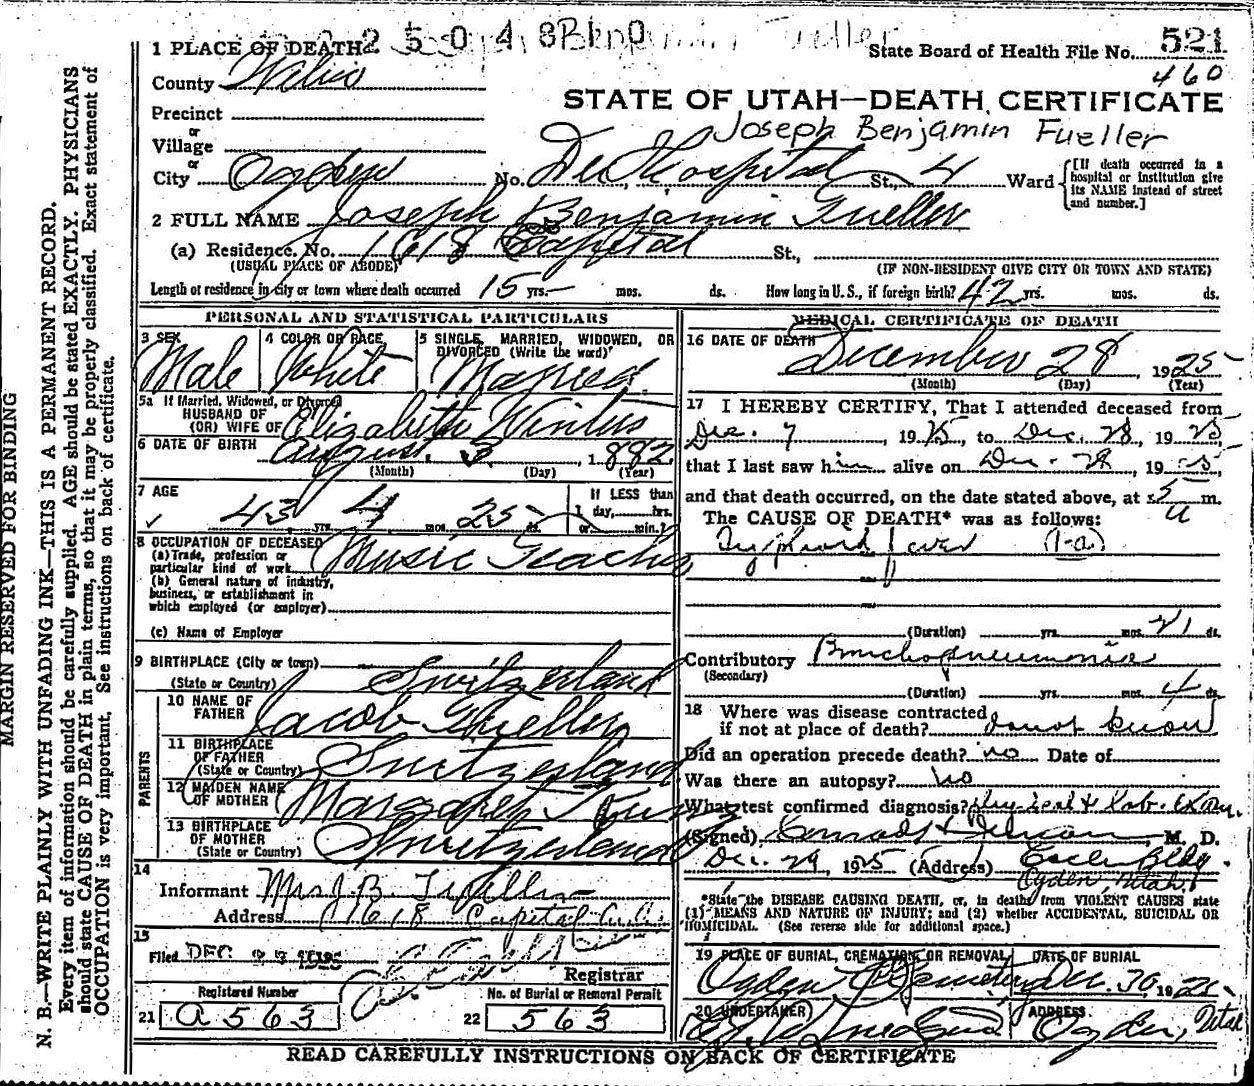 2 5 0 4 8 Benjamin Fueller
1 PLACE OF DEATH
State Board of Health File No. 521
460
County
STATE OF UTAH—DEATH CERTIFICATE
Precinct
Joseph Benjamin Fueller
or
Village
or
City Ogden No. Dee Hospital St., 4 Ward
[If death occurred in a hospital or institution give its NAME instead of street and number.]
2 FULL NAME Joseph Benjamin Fueller
(a) Residence. No. 1618 Capital St.,
(USUAL PLACE OF ABODE) (IF NON-RESIDENT GIVE CITY OR TOWN AND STATE)
Length of residence in city or town where death occurred 15 yrs. mos. ds. How long in U.S., if foreign birth? 42 yrs. mos. ds.
PERSONAL AND STATISTICAL PARTICULARS
3 SEX Male
4 COLOR OR RACE White
5 SINGLE, MARRIED, WIDOWED, OR DIVORCED (Write the word) Married
5a If Married, Widowed, or Divorced
HUSBAND OF
(OR) WIFE OF Elizabeth
6 DATE OF BIRTH August 3, 1882
(Month) (Day) (Year)
7 AGE
43 yrs. 4 mos. 25 ds.
If LESS than
1 day, hrs.
or min.?
8 OCCUPATION OF DECEASED
(a) Trade, profession or
particular kind of work Music Teacher
(b) General nature of industry,
business, or establishment in
which employed (or employer)
(c) Name of Employer
9 BIRTHPLACE (City or town)
(State or Country) Switzerland
PARENTS
10 NAME OF
FATHER Jacob Fueller
11 BIRTHPLACE
OF FATHER
(State or Country) Switzerland
12 MAIDEN NAME
OF MOTHER Margaret
13 BIRTHPLACE
OF MOTHER
(State or Country) Switzerland
14
Informant Mrs J. B. Fueller
Address 1618 Capital
15
Filed DEC. 1925
Registrar
Registered Number
21 A563
No. of Burial or Removal Permit
22 563
MEDICAL CERTIFICATE OF DEATH
16 DATE OF DEATH
December 28 1925
(Month) (Day) (Year)
17 I HEREBY CERTIFY, That I attended deceased from
Dec. 7, 1925, to Dec. 28, 1925,
that I last saw him alive on Dec. 28, 1925
and that death occurred, on the date stated above, at 5 a m.
The CAUSE OF DEATH* was as follows:
Typhoid fever (1-a)
(Duration) yrs. mos. 21 ds.
Contributory Bronchopneumonia
(Secondary)
(Duration) yrs. mos. 4 ds.
18 Where was disease contracted
if not at place of death? do not know
Did an operation precede death? no Date of
Was there an autopsy? No
What test confirmed diagnosis? & Lab. Exam.
(Signed) M. D.
Dec. 29, 1925 (Address) Eccles Bldg.
Ogden, Utah.
*State the DISEASE CAUSING DEATH, or, in deaths from VIOLENT CAUSES state
(1) MEANS AND NATURE OF INJURY; and (2) whether ACCIDENTAL, SUICIDAL OR
HOMICIDAL. (See reverse side for additional space.)
19 PLACE OF BURIAL, CREMATION, OR REMOVAL DATE OF BURIAL
Ogden Cemetery Dec. 30, 1925
20 UNDERTAKER ADDRESS
Ogden, Utah
READ CAREFULLY INSTRUCTIONS ON BACK OF CERTIFICATE
MARGIN RESERVED FOR BINDING
N. B.—WRITE PLAINLY WITH UNFADING INK—THIS IS A PERMANENT RECORD.
Every item of information should be carefully supplied. AGE should be stated EXACTLY. PHYSICIANS
should state CAUSE OF DEATH in plain terms, so that it may be properly classified. Exact statement of
OCCUPATION is very important. See instructions on back of certificate.